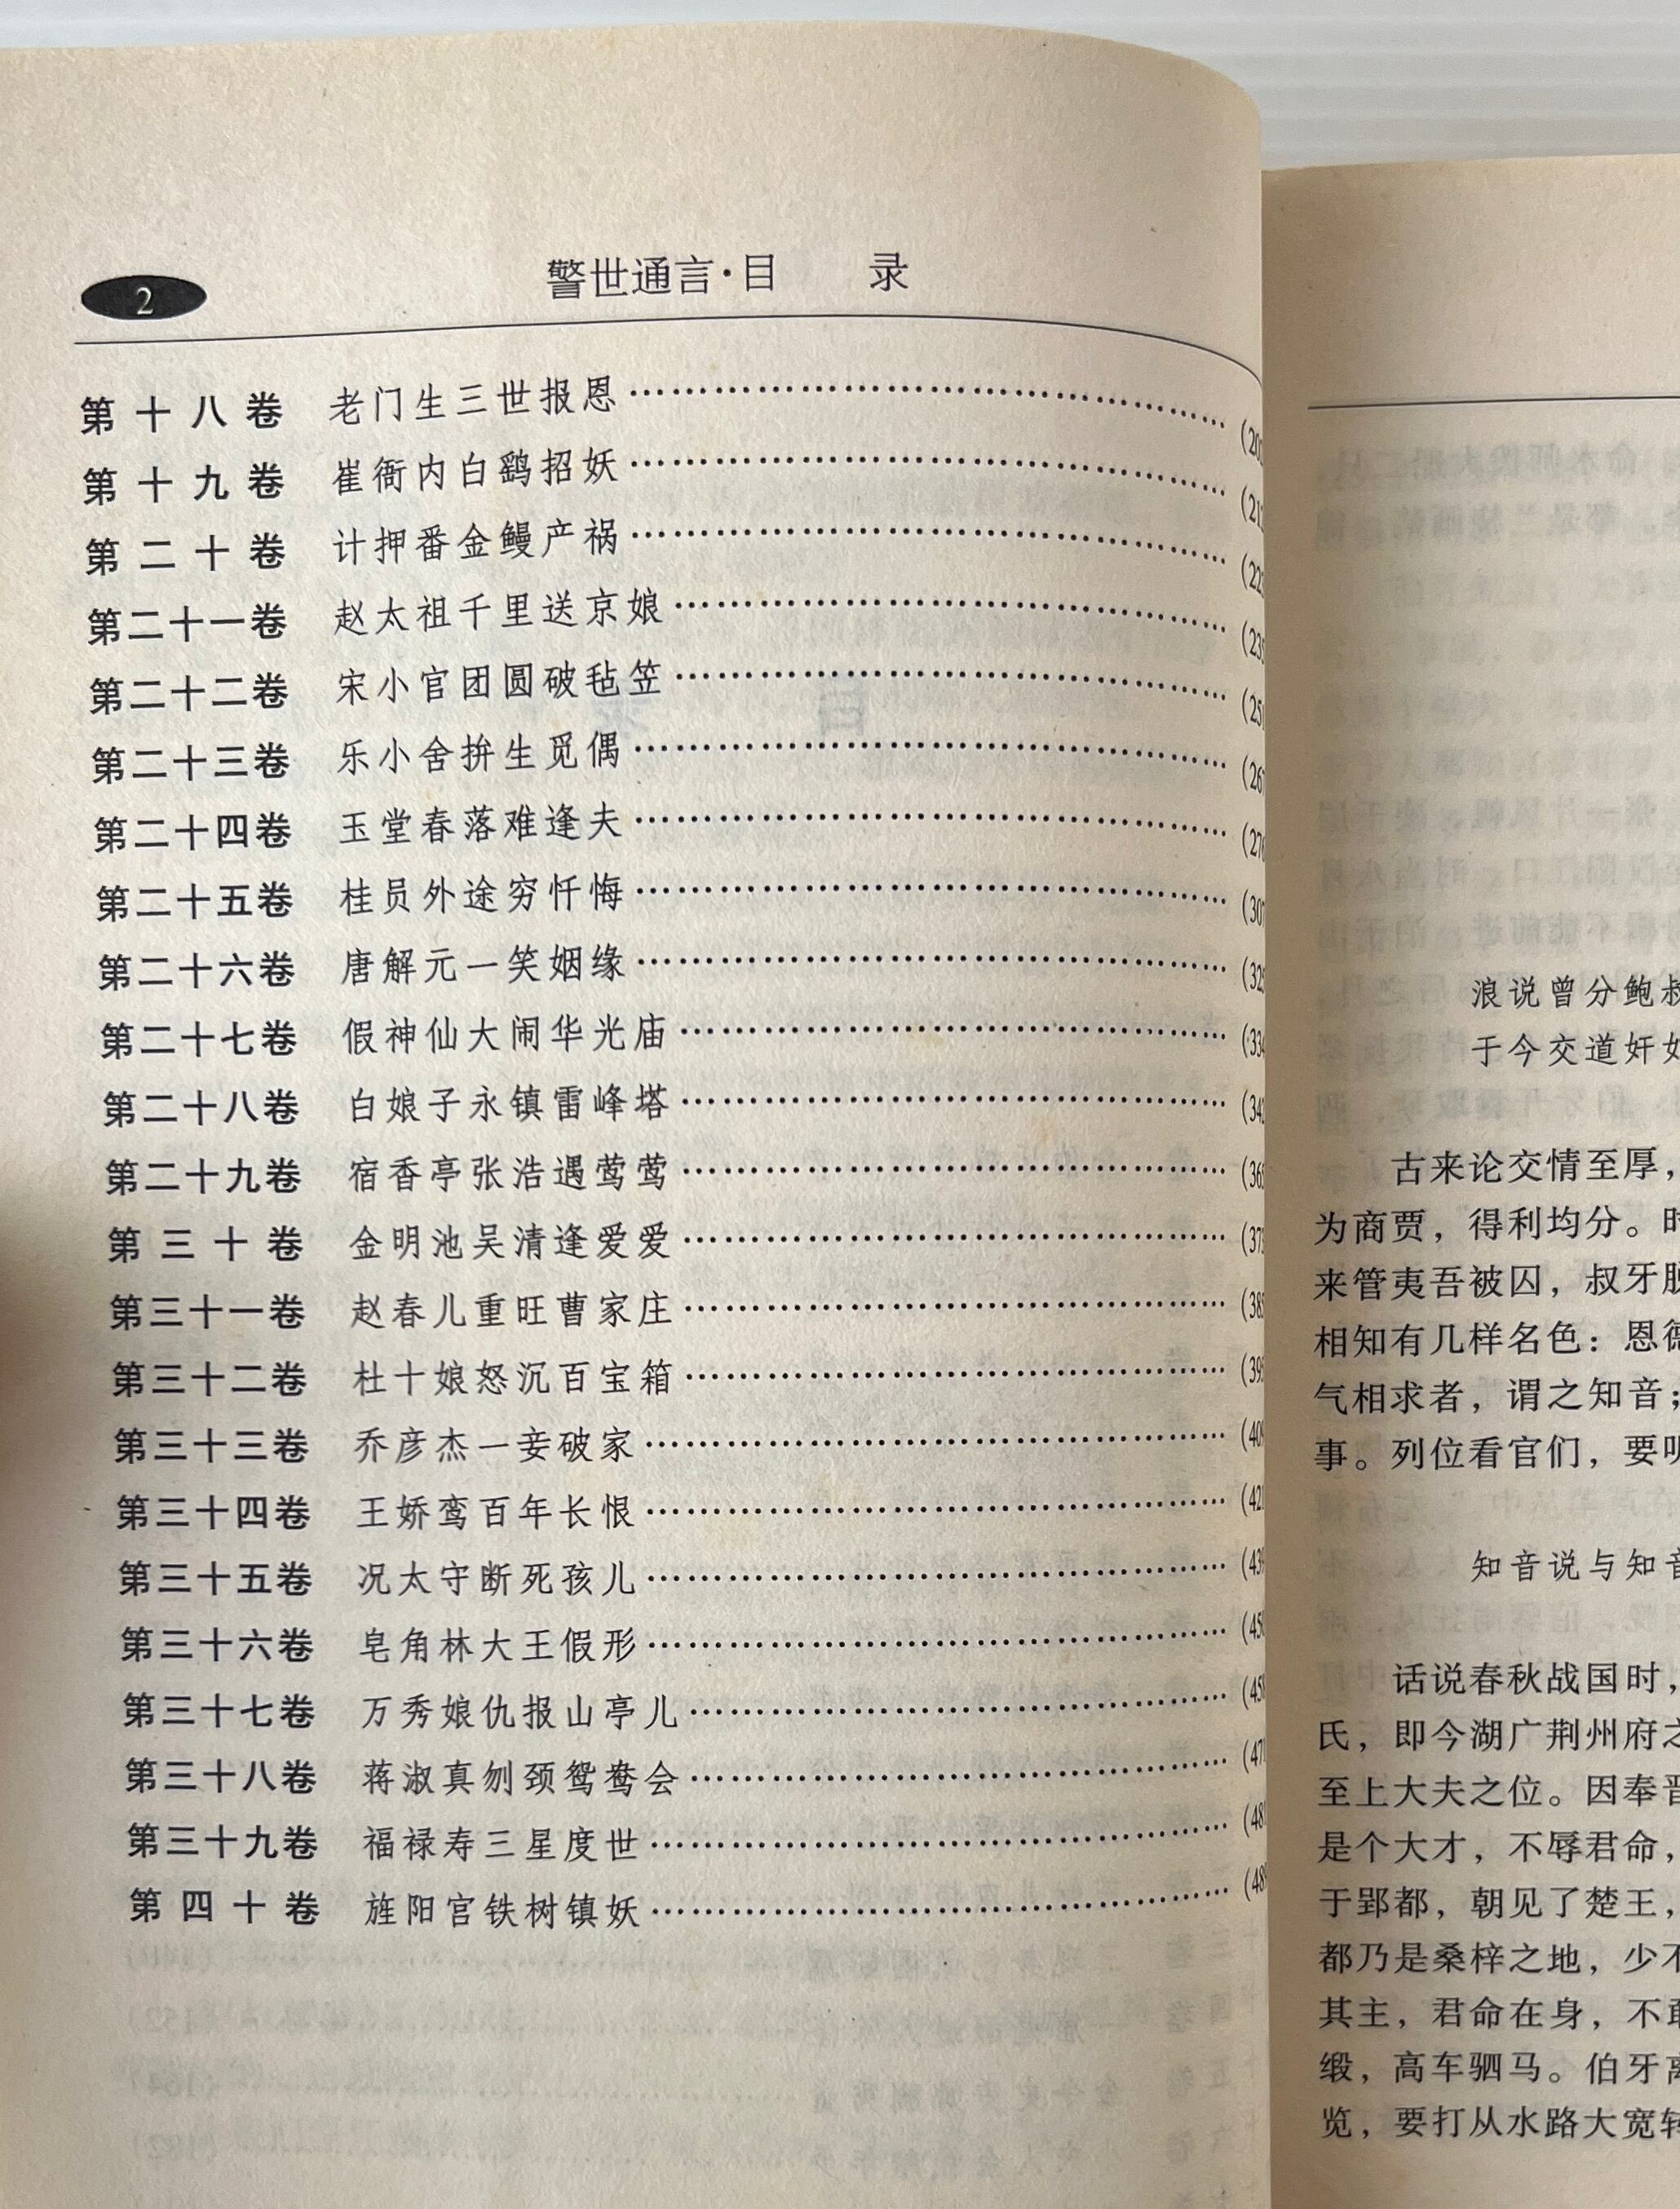 2
警世通言·目 录
第十八卷 老门生三世报恩
第十九卷 崔衙内白鹞招妖
第二十卷 计押番金鳗产祸
第二十一卷 赵太祖千里送京娘
第二十二卷 宋小官团圆破毡笠
第二十三卷 乐小舍拚生觅偶
第二十四卷 玉堂春落难逢夫
第二十五卷 桂员外途穷忏悔
第二十六卷 唐解元一笑姻缘
第二十七卷 假神仙大闹华光庙
第二十八卷 白娘子永镇雷峰塔
第二十九卷 宿香亭张浩遇莺莺
第三十卷 金明池吴清逢爱爱
第三十一卷 赵春儿重旺曹家庄
第三十二卷 杜十娘怒沉百宝箱
第三十三卷 乔彦杰一妾破家
第三十四卷 王娇鸾百年长恨
第三十五卷 况太守断死孩儿
第三十六卷 皂角林大王假形
第三十七卷 万秀娘仇报山亭儿
第三十八卷 蒋淑真刎颈鸳鸯会
第三十九卷 福禄寿三星度世
第四十卷 旌阳宫铁树镇妖
浪说曾分鲍
于今交道奸
古来论交情至厚，
为商贾，得利均分。
来管夷吾被囚，叔牙
相知有几样名色：恩
气相求者，谓之知音；
事。列位看官们，要
知音说与知
话说春秋战国时，
氏，即今湖广荆州府
至上大夫之位。因奉
是个大才，不辱君命，
于郢都，朝见了楚王，
都乃是桑梓之地，少
其主，君命在身，不
缎，高车驷马。伯牙
览，要打从水路大宽